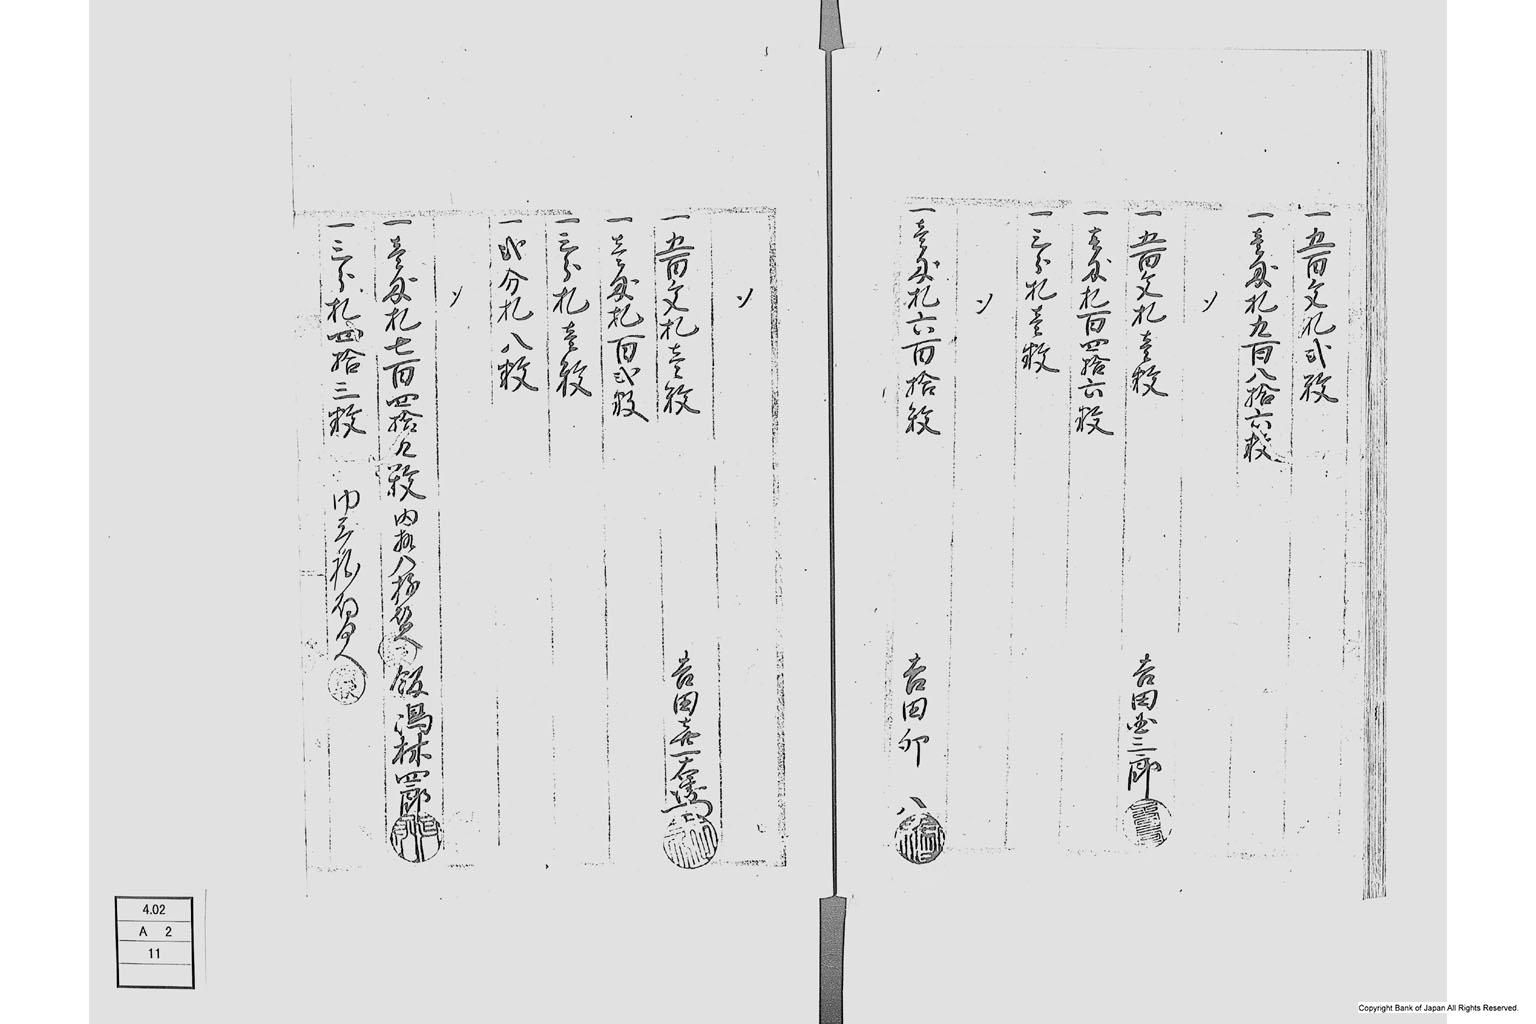 一 五百文札弐枚
一 壱匁札九百八拾六枚
〃
一 五百文札壱枚 吉田 三郎
一 壱匁札百四拾六枚
一 三分札壱枚
〃
一 壱匁札六百拾枚 吉田卯八
〃
一 五百文札壱枚 吉田喜一右衛門
一 壱匁札百弐枚
一 三分札壱枚
一 弐分札八枚
〃
一 壱匁札七百四拾九枚 内 八 飯 林四郎
一 三分札四拾三枚
4.02
A 2
11
Copyright Bank of Japan All Rights Reserved.